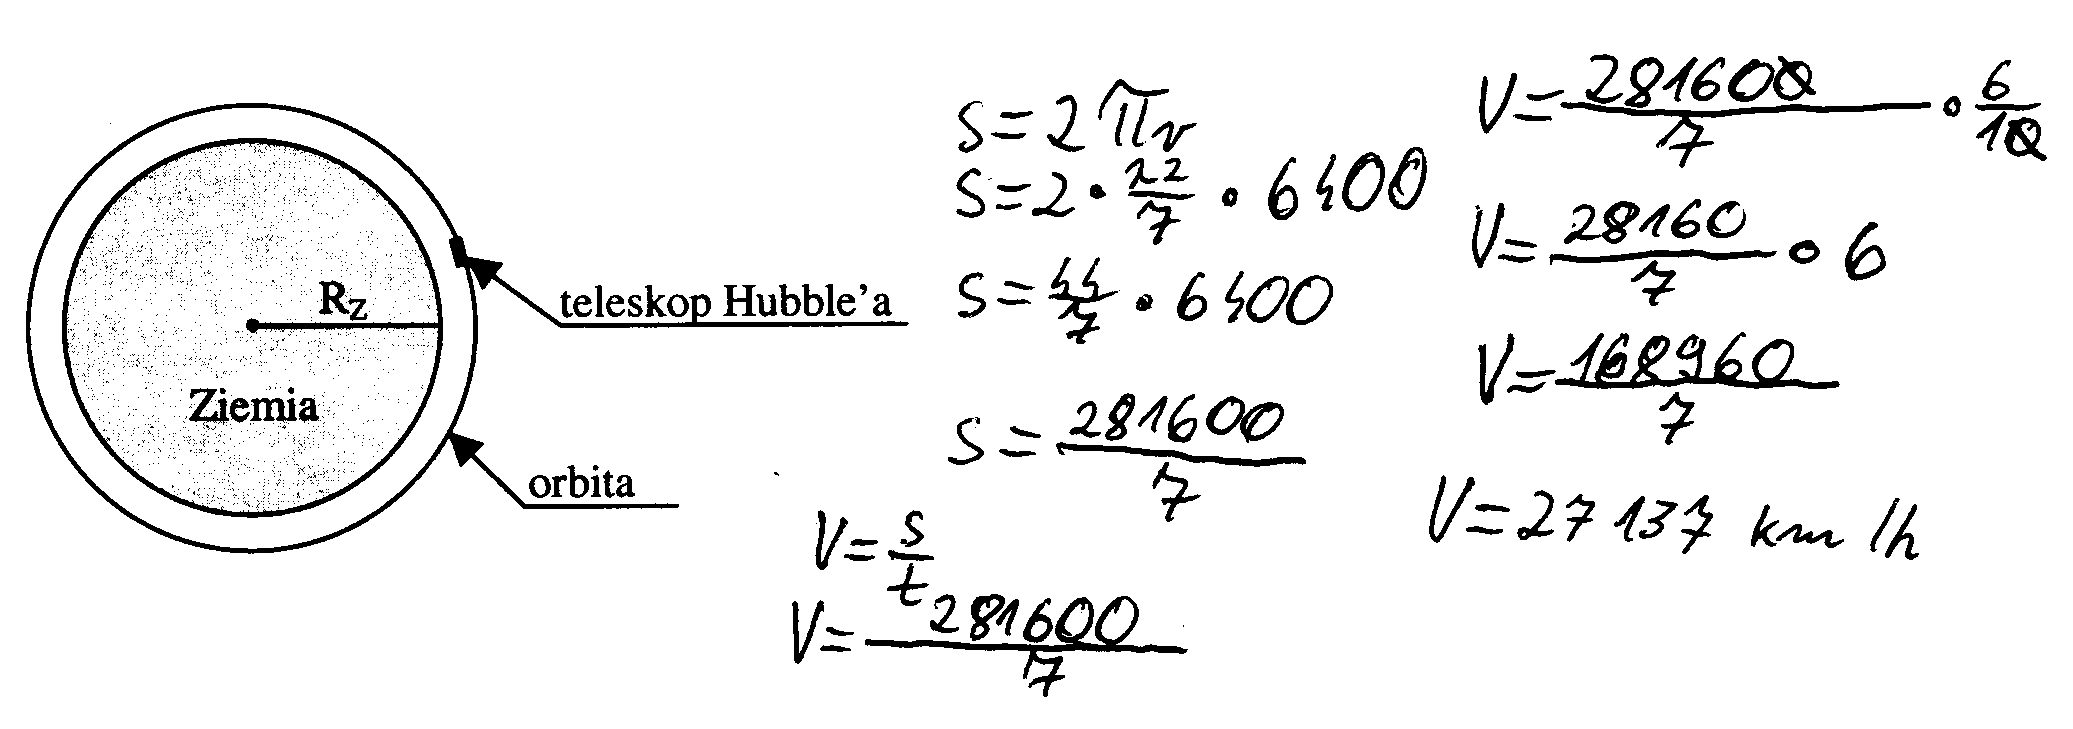 R_Z
teleskop Hubble'a
Ziemia
orbita
S = 2πr
S = 2 · 22/7 · 6400
S = 44/7 · 6400
S = 281600/7
V = s/t
V = 281600/7
V = 281600/7 · 6/10
V = 28160/7 · 6
V = 168960/7
V = 27137 km/h